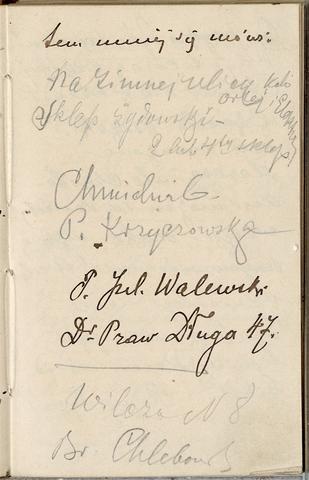 tem mniej się mówi:
Na Zimnej ulicy koło
Orlej i Elekt
Sklep żydowski –
2 lub 4ty sklep
Chmiel
P. Krzyczowska
P. Jul. Walewski
Dr Praw Długa 47.
Wilcza N 8
Br. Chlebowski